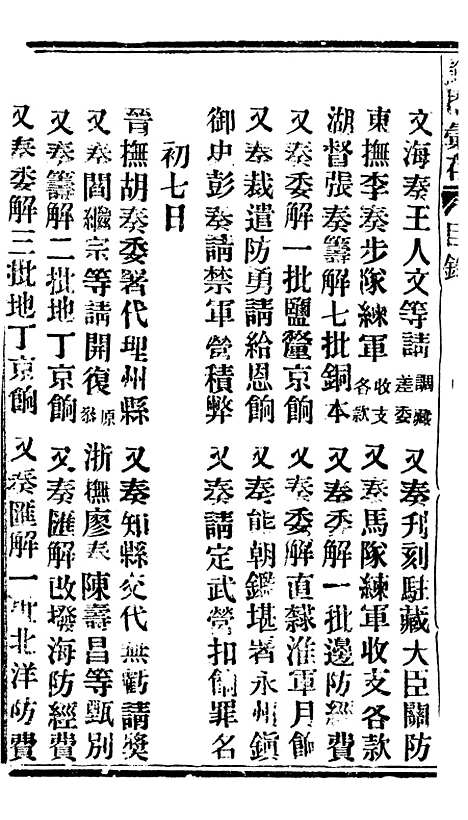 目錄
文海奏王人文等請調藏差委　又奏刋刻駐藏大臣關防
東撫李奏步隊練軍收支各款　又奏馬隊練軍收支各款
湖督張奏籌解七批銅本　又奏委解一批邊防經費
又奏委解一批鹽釐京餉　又奏委解直隸淮軍月餉
又奏裁遣防勇請給恩餉　又奏能朝鑑堪署永州鎭
御史彭奏請禁軍營積弊　又奏請定武營扣餉罪名
初七日
晉撫胡奏委署代理州縣　又奏知縣交代無虧請獎
又奏閻繼宗等請開復原叅　浙撫廖奏陳壽昌等甄別
又奏籌解二批地丁京餉　又奏匯解改撥海防經費
又奏委解三批地丁京餉　又奏匯解一批北洋防費